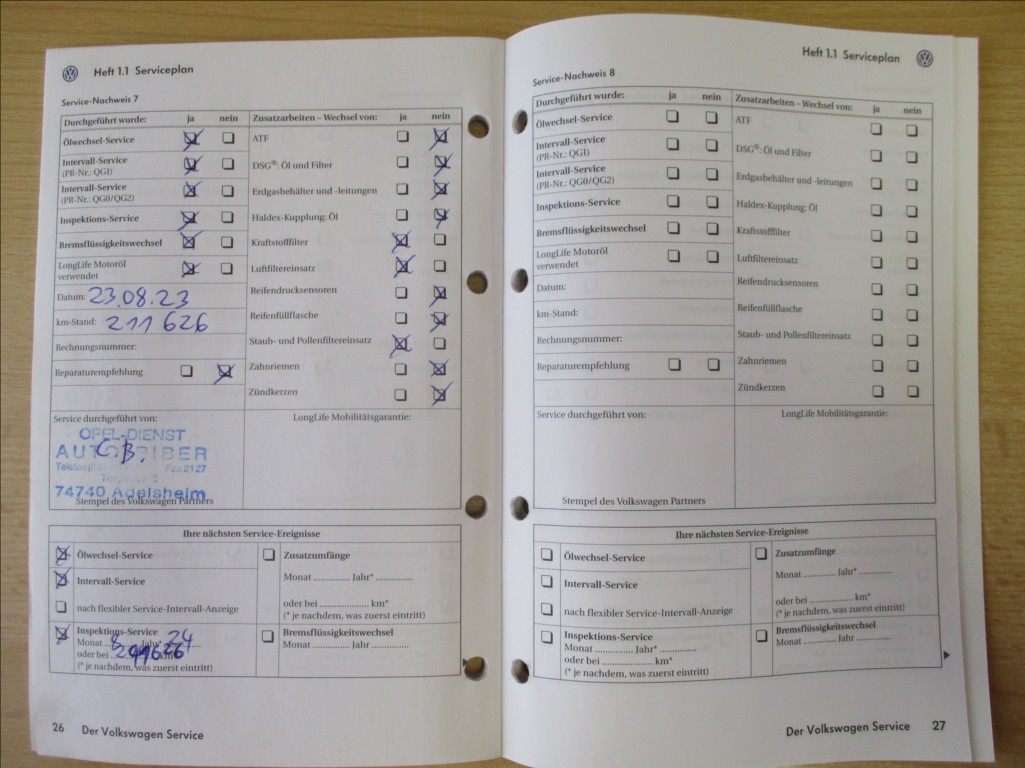 Heft 1.1 Serviceplan
Service-Nachweis 7
Durchgeführt wurde: ja nein
Ölwechsel-Service
Intervall-Service
(PR-Nr.: QG1)
Intervall-Service
(PR-Nr.: QG0/QG2)
Inspektions-Service
Bremsflüssigkeitswechsel
LongLife Motoröl
verwendet
Datum: 23.08.23
km-Stand: 211 626
Rechnungsnummer:
Reparaturempfehlung
Zusatzarbeiten – Wechsel von: ja nein
ATF
DSG®: Öl und Filter
Erdgasbehälter und -leitungen
Haldex-Kupplung: Öl
Kraftstofffilter
Luftfiltereinsatz
Reifendrucksensoren
Reifenfüllflasche
Staub- und Pollenfiltereinsatz
Zahnriemen
Zündkerzen
Service durchgeführt von:
OPEL-DIENST
Fax 2127
74740 Adelsheim
Stempel des Volkswagen Partners
LongLife Mobilitätsgarantie:
Ihre nächsten Service-Ereignisse
Ölwechsel-Service
Intervall-Service
nach flexibler Service-Intervall-Anzeige
Inspektions-Service
Monat 8 Jahr* 24
oder bei km*
(* je nachdem, was zuerst eintritt)
Zusatzumfänge
Monat .............. Jahr* ..............
oder bei .................... km*
(* je nachdem, was zuerst eintritt)
Bremsflüssigkeitswechsel
Monat .............. Jahr ..............
26 Der Volkswagen Service
Heft 1.1 Serviceplan
Service-Nachweis 8
Durchgeführt wurde: ja nein
Ölwechsel-Service
Intervall-Service
(PR-Nr.: QG1)
Intervall-Service
(PR-Nr.: QG0/QG2)
Inspektions-Service
Bremsflüssigkeitswechsel
LongLife Motoröl
verwendet
Datum:
km-Stand:
Rechnungsnummer:
Reparaturempfehlung
Zusatzarbeiten – Wechsel von: ja nein
ATF
DSG®: Öl und Filter
Erdgasbehälter und -leitungen
Haldex-Kupplung: Öl
Kraftstofffilter
Luftfiltereinsatz
Reifendrucksensoren
Reifenfüllflasche
Staub- und Pollenfiltereinsatz
Zahnriemen
Zündkerzen
Service durchgeführt von:
Stempel des Volkswagen Partners
LongLife Mobilitätsgarantie:
Ihre nächsten Service-Ereignisse
Ölwechsel-Service
Intervall-Service
nach flexibler Service-Intervall-Anzeige
Inspektions-Service
Monat .............. Jahr* ..............
oder bei .................... km*
(* je nachdem, was zuerst eintritt)
Zusatzumfänge
Monat .............. Jahr* ..............
oder bei .................... km*
(* je nachdem, was zuerst eintritt)
Bremsflüssigkeitswechsel
Monat .............. Jahr ..............
Der Volkswagen Service 27